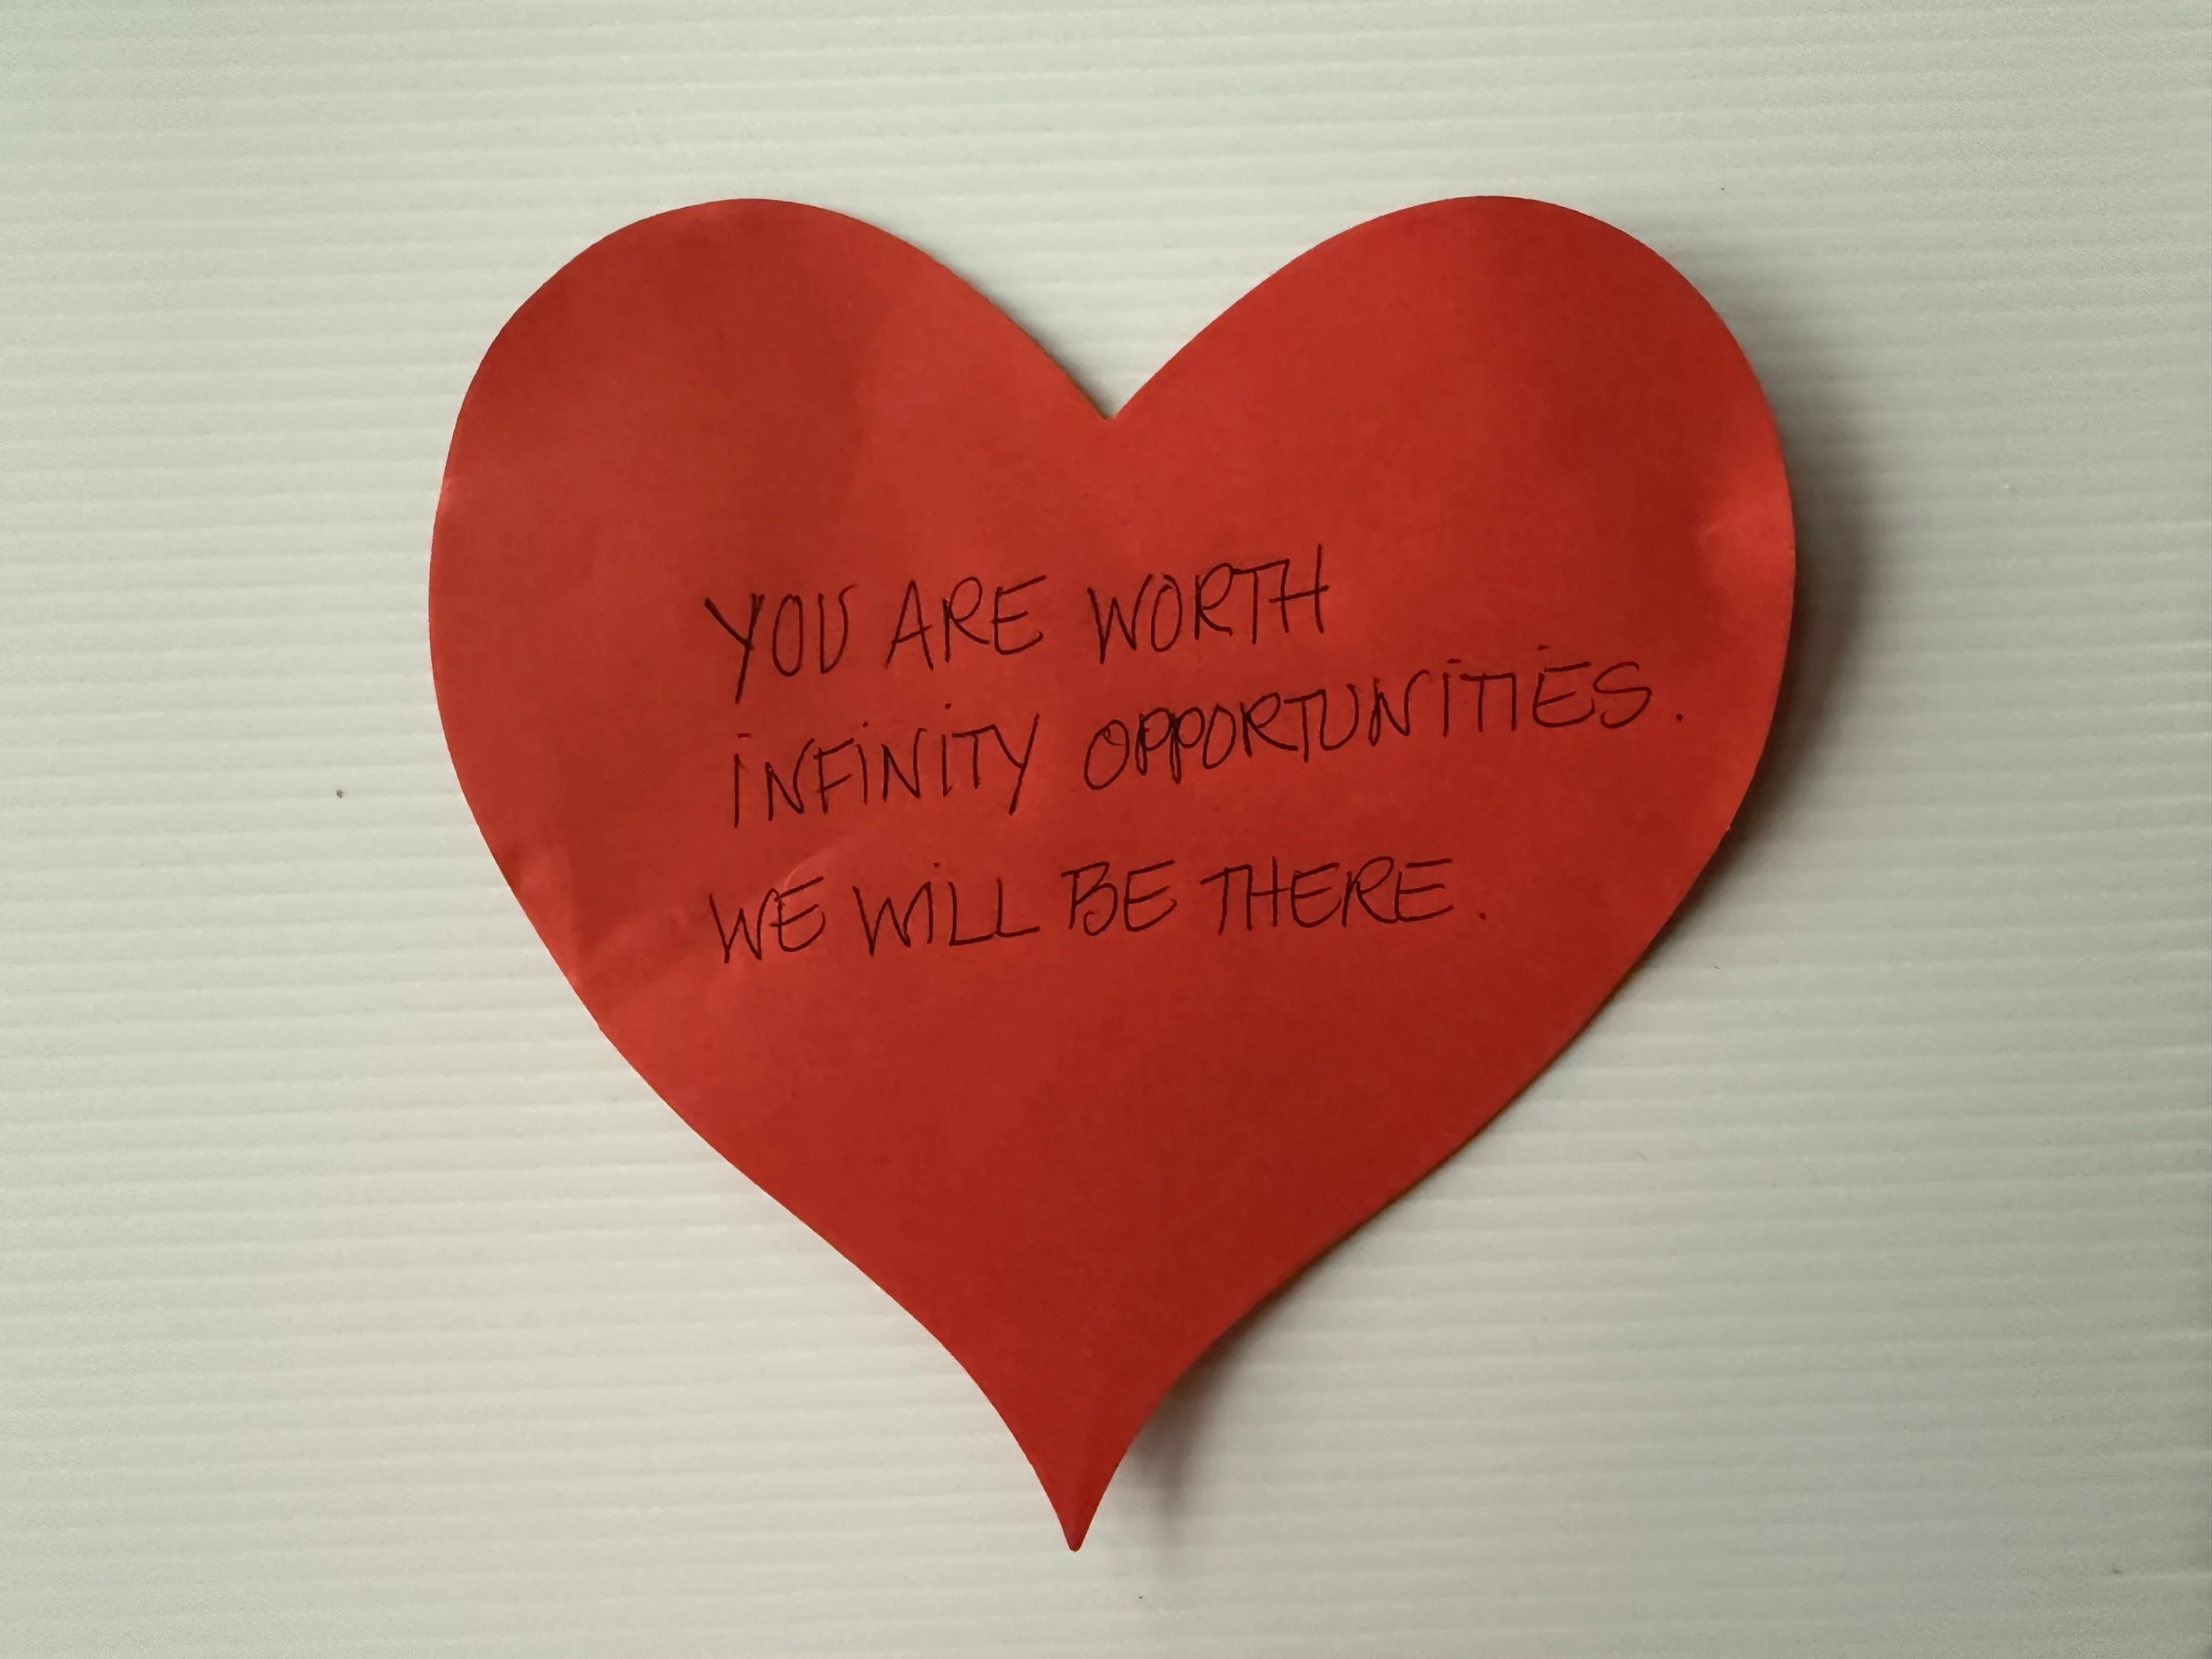 YOU ARE WORTH
INFINITY OPPORTUNITIES.
WE WILL BE THERE.